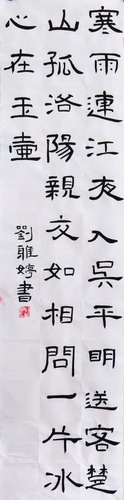 寒雨連江夜入吳平明送客楚
山孤洛陽親友如相問一片冰
心在玉壺
劉雅婷書